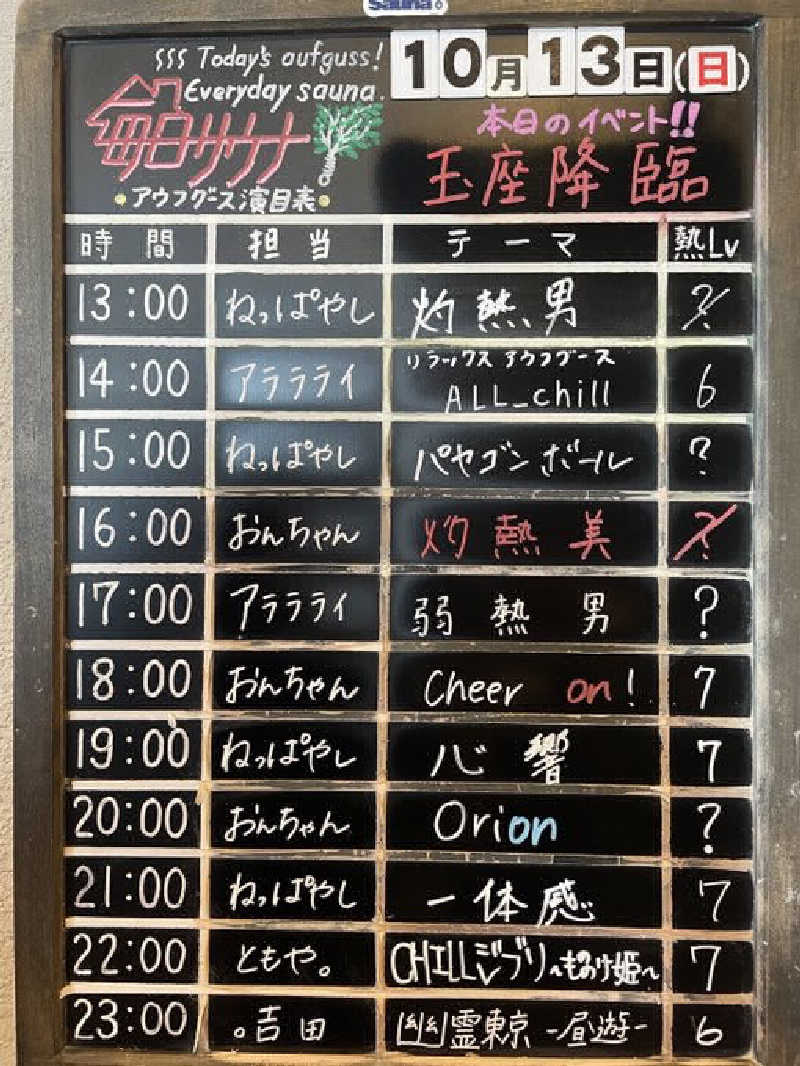 Sauna
SSS Today's aufguss!
Everyday sauna.
毎日サウナ
アウフグース演目表
10月13日(日)
本日のイベント!!
玉座降臨
時間 担当 テーマ 熱Lv
13:00 ねっぱやし 灼熱男 ?
14:00 アラララライ リラックスアウフグース ALL_chill 6
15:00 ねっぱやし パヤゴンボール ?
16:00 おんちゃん 灼熱美 ?
17:00 アララライ 弱熱男 ?
18:00 おんちゃん Cheer on! 7
19:00 ねっぱやし 心響 7
20:00 おんちゃん Orion ?
21:00 ねっぱやし 一体感 7
22:00 ともや。 CHILLジブリ~もののけ姫~ 7
23:00 。吉田 幽霊東京-昼遊- 6